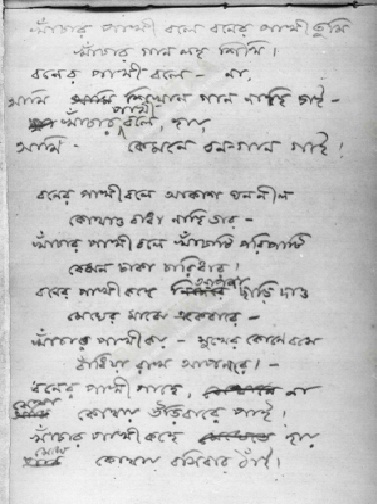 খাঁচার পাখী বলে বনের পাখী তুমি
খাঁচার গান লহ শিখি।
বনের পাখী বলে - না,
আমি শিখান গান নাহি চাই -
খাঁচার পাখী বলে, হায়
আমি - কেমনে বনগান গাই!
বনের পাখী বলে আকাশ ঘননীল
কোথাও বাধা নাহি তার -
খাঁচার পাখী বলে খাঁচাটি পরিপাটি
কেমন ঢাকা চারিধার!
বনের পাখী কহে আপনা ছাড়ি দাও
মেঘের মাঝে একেবারে -
খাঁচার পাখী কয় - সুখের কোণে বসে
বাঁধিয়া রাখ আপনারে! -
বনের পাখী গাহে, না
সেথা কোথায় উড়িবারে পাই!
খাঁচার পাখী কহে হায়
মেঘে কোথায় বসিবার ঠাঁই!